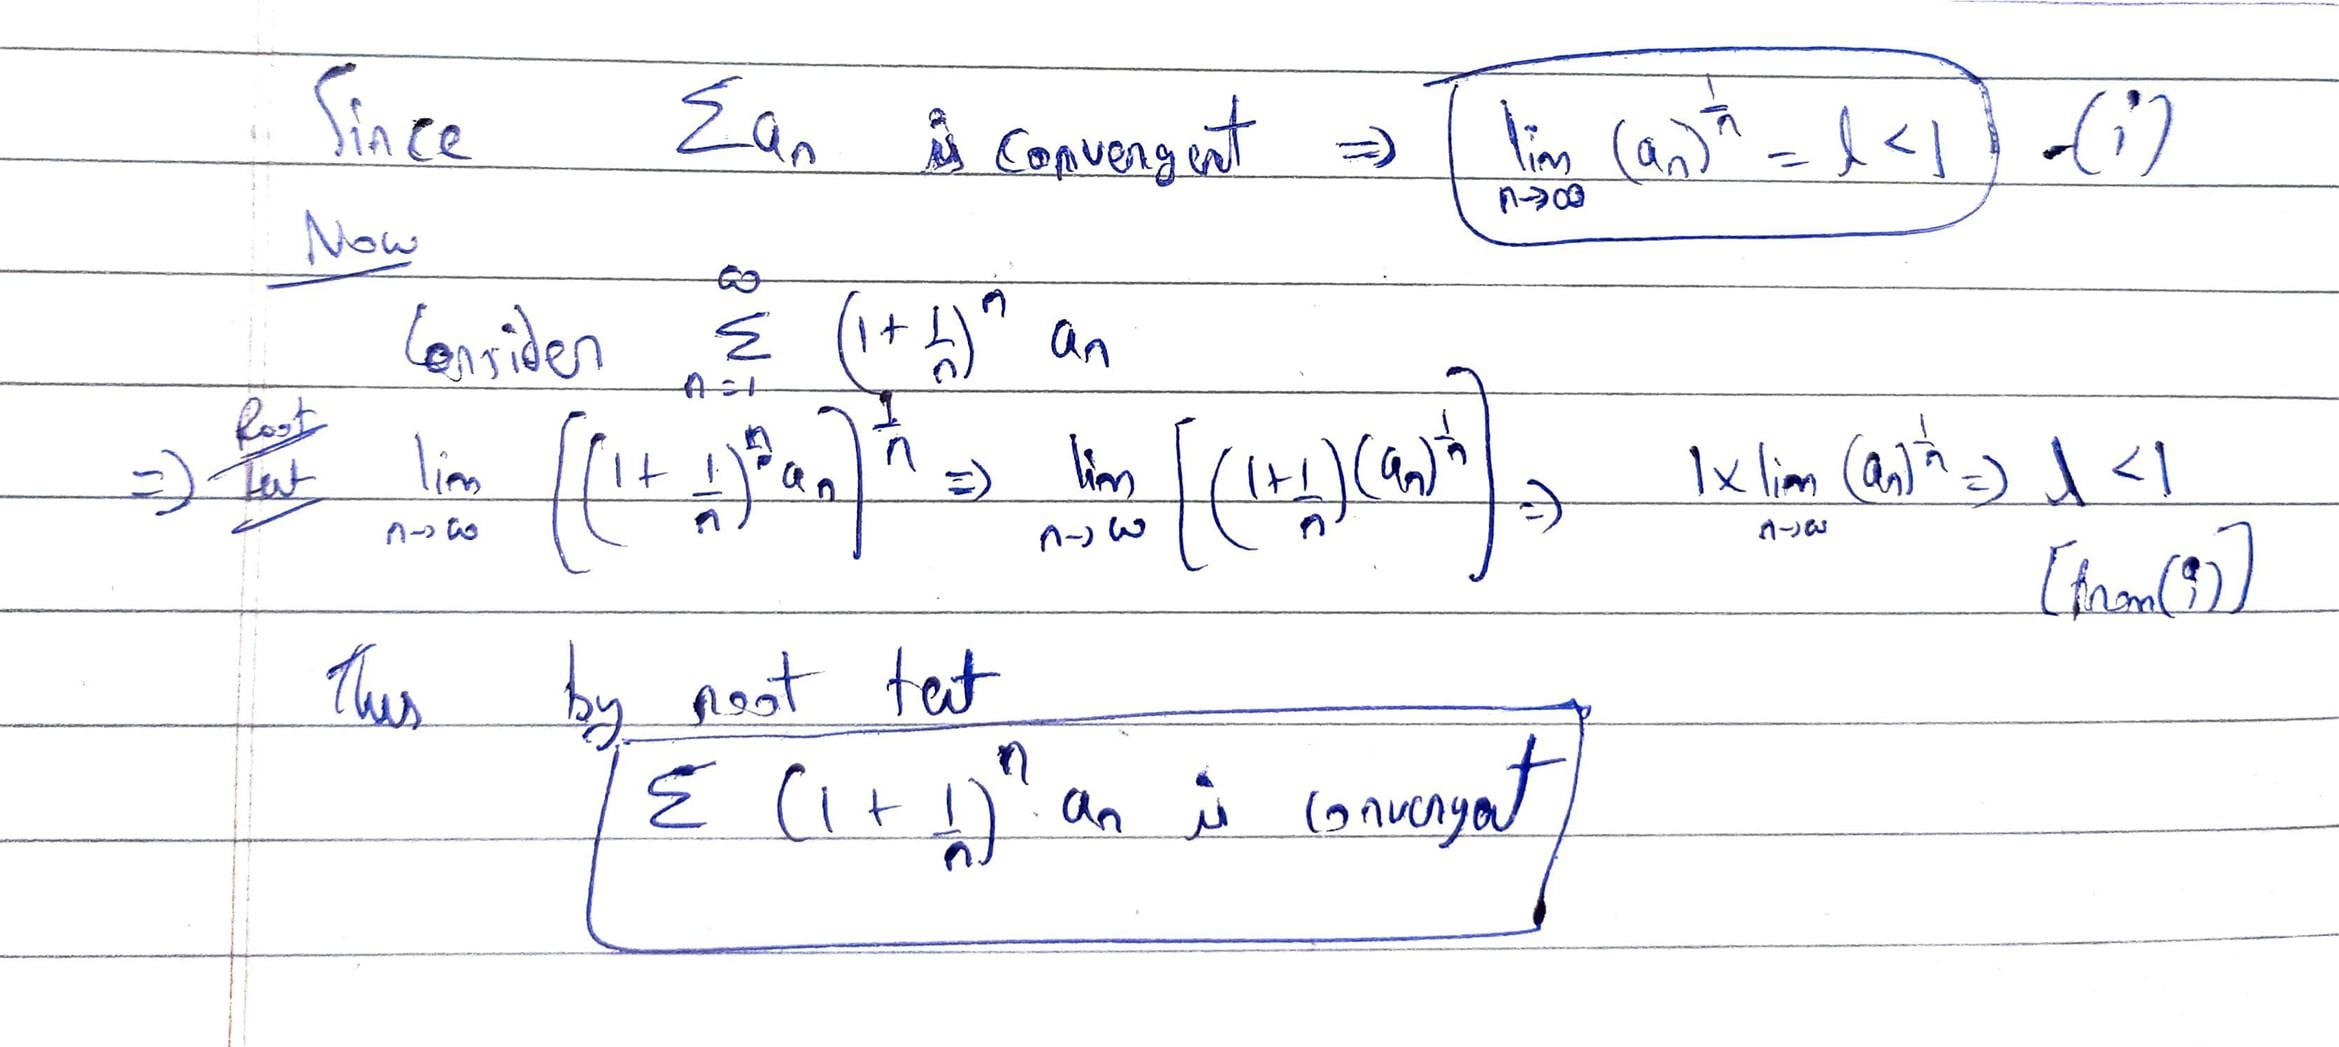 Since Σan is convergent ⇒ lim n→∞ (an)^1/n = l < 1 -(i)
Now
Consider ∞ Σ n=1 (1 + 1/n)^n an
⇒ Root test lim n→∞ [(1 + 1/n)^n an]^1/n ⇒ lim n→∞ [(1+1/n)(an)^1/n] ⇒ 1 x lim n→∞ (an)^1/n ⇒ l < 1
[from (i)]
Thus by root test
Σ (1 + 1/n)^n an is convergent